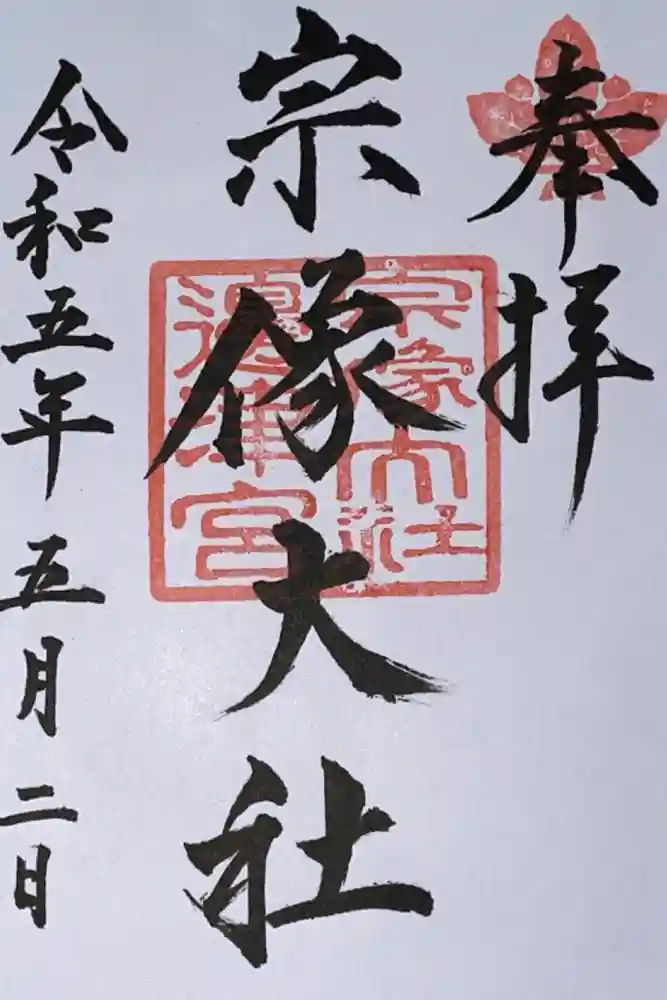 奉拝
宗像大社
宗像大社
邉津宮
令和五年五月二日